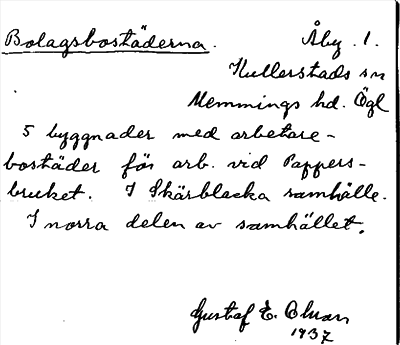 Bolagsbostäderna. Åby. 1.
Kullerstads sn
Memmings hd. Ögl
5 byggnader med arbetare-
bostäder för arb. vid Pappers-
bruket. I Skärblacka samhälle.
I norra delen av samhället.
Gustaf E. Olsson
1937